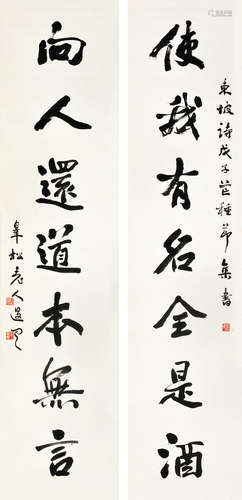 東坡詩戊子芒種節集書
使我有名全是酒
向人還道本無言
皐松老人